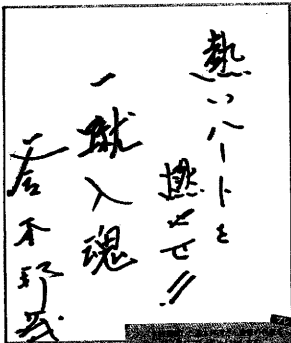 熱いハートを
燃やせ!!
一蹴入魂